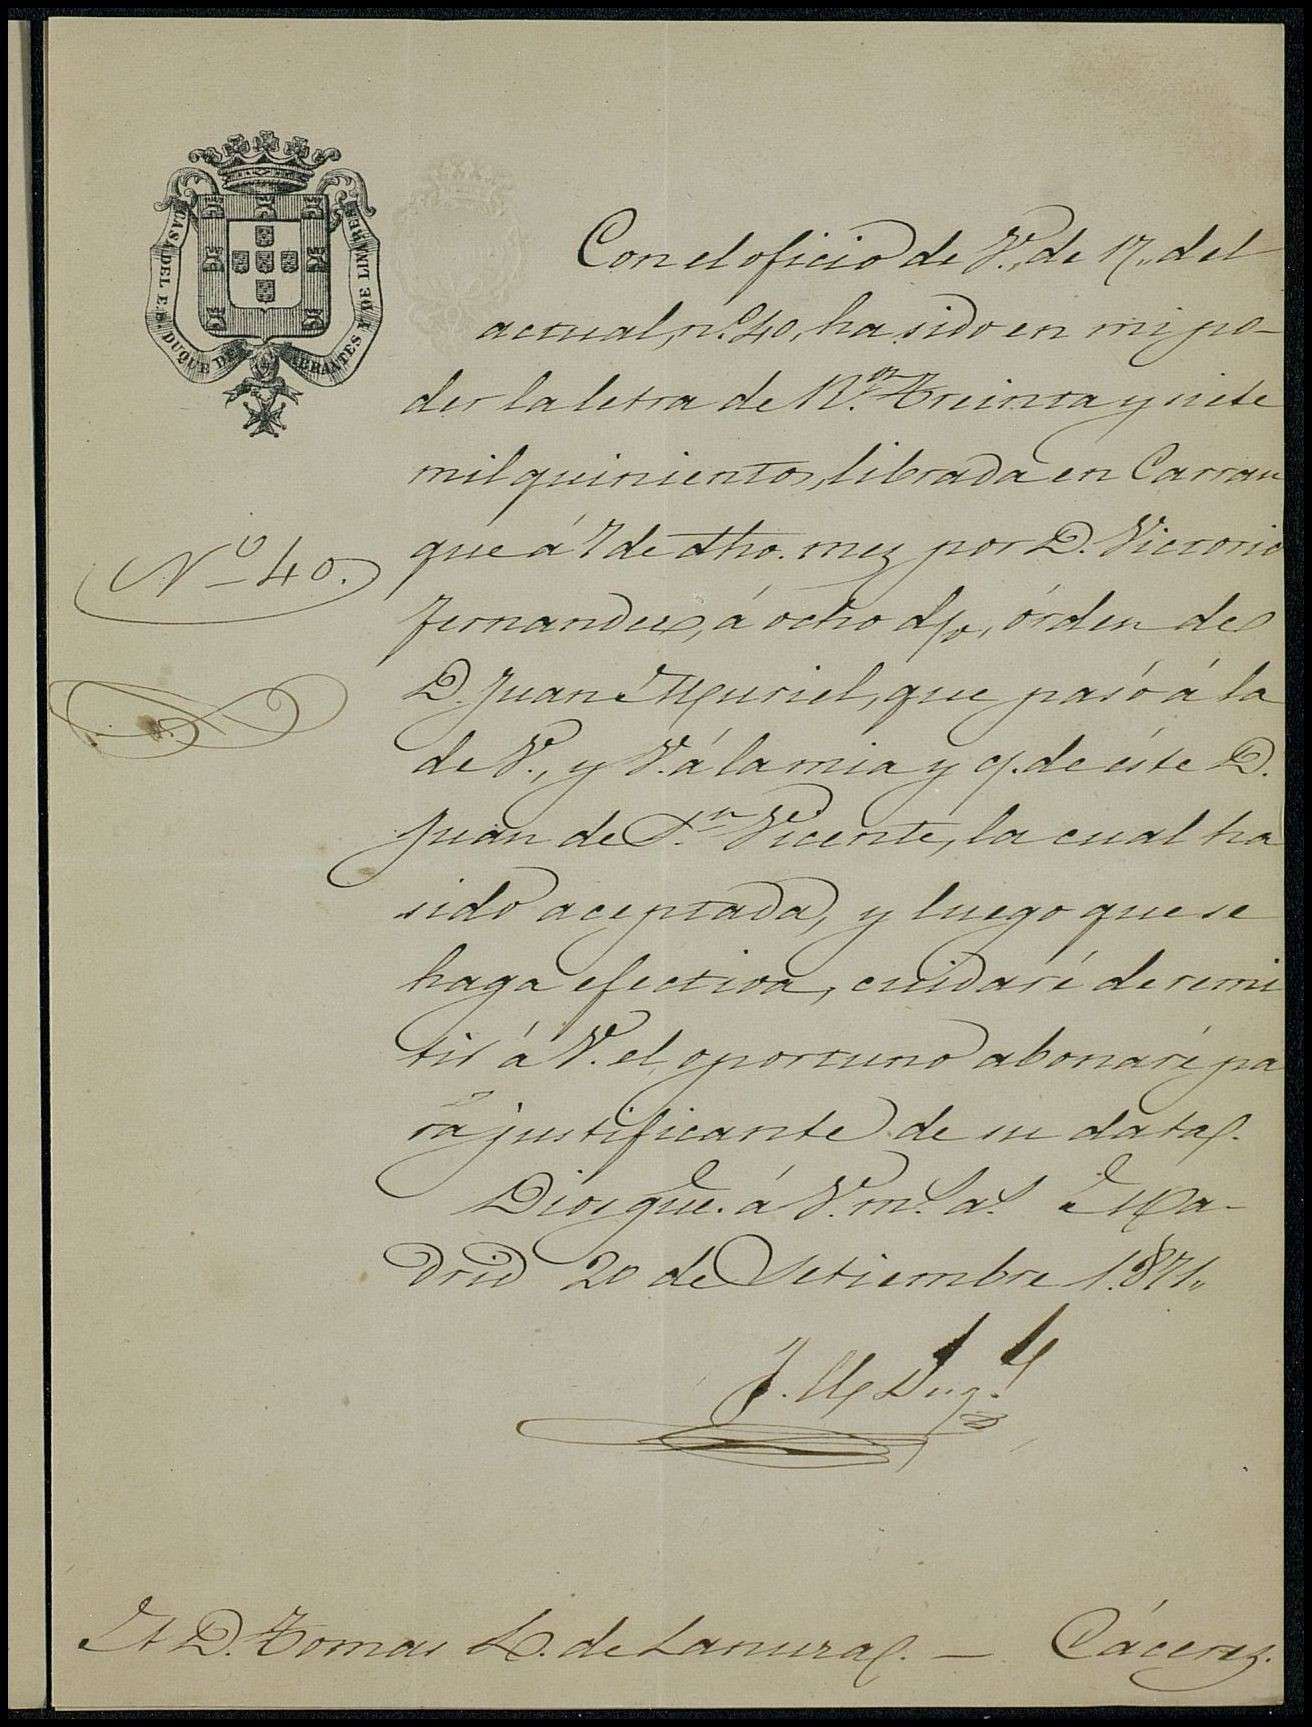 CASA DEL E. S. DUQUE DE ABRANTES Y DE LINARES
Con el oficio de V., de 17, del
actual, nº 40, ha sido en mi po-
der la letra de Rˢ. vⁿ. Treinta y siete
mil quinientos, librada en Carran
que á 7 de dho. mez por D. Victorio
Nº 40.
Fernandez, á ocho d/v, órden de
D. Juan Muriel, que pasó á la
de V., y V. á la mia y c/. de éste D.
Juan de Sⁿ. Vicente, la cual ha
sido aceptada, y luego que se
haga efectiva, cuidaré de remi
tir á V. el oportuno abonaré pa
ra justificante de su data.
Dios gue. á V. mˢ. aˢ. Ma-
drid 20 de Setiembre 1.871.
A D. Tomas L. de Lanuza. — Cáceres.